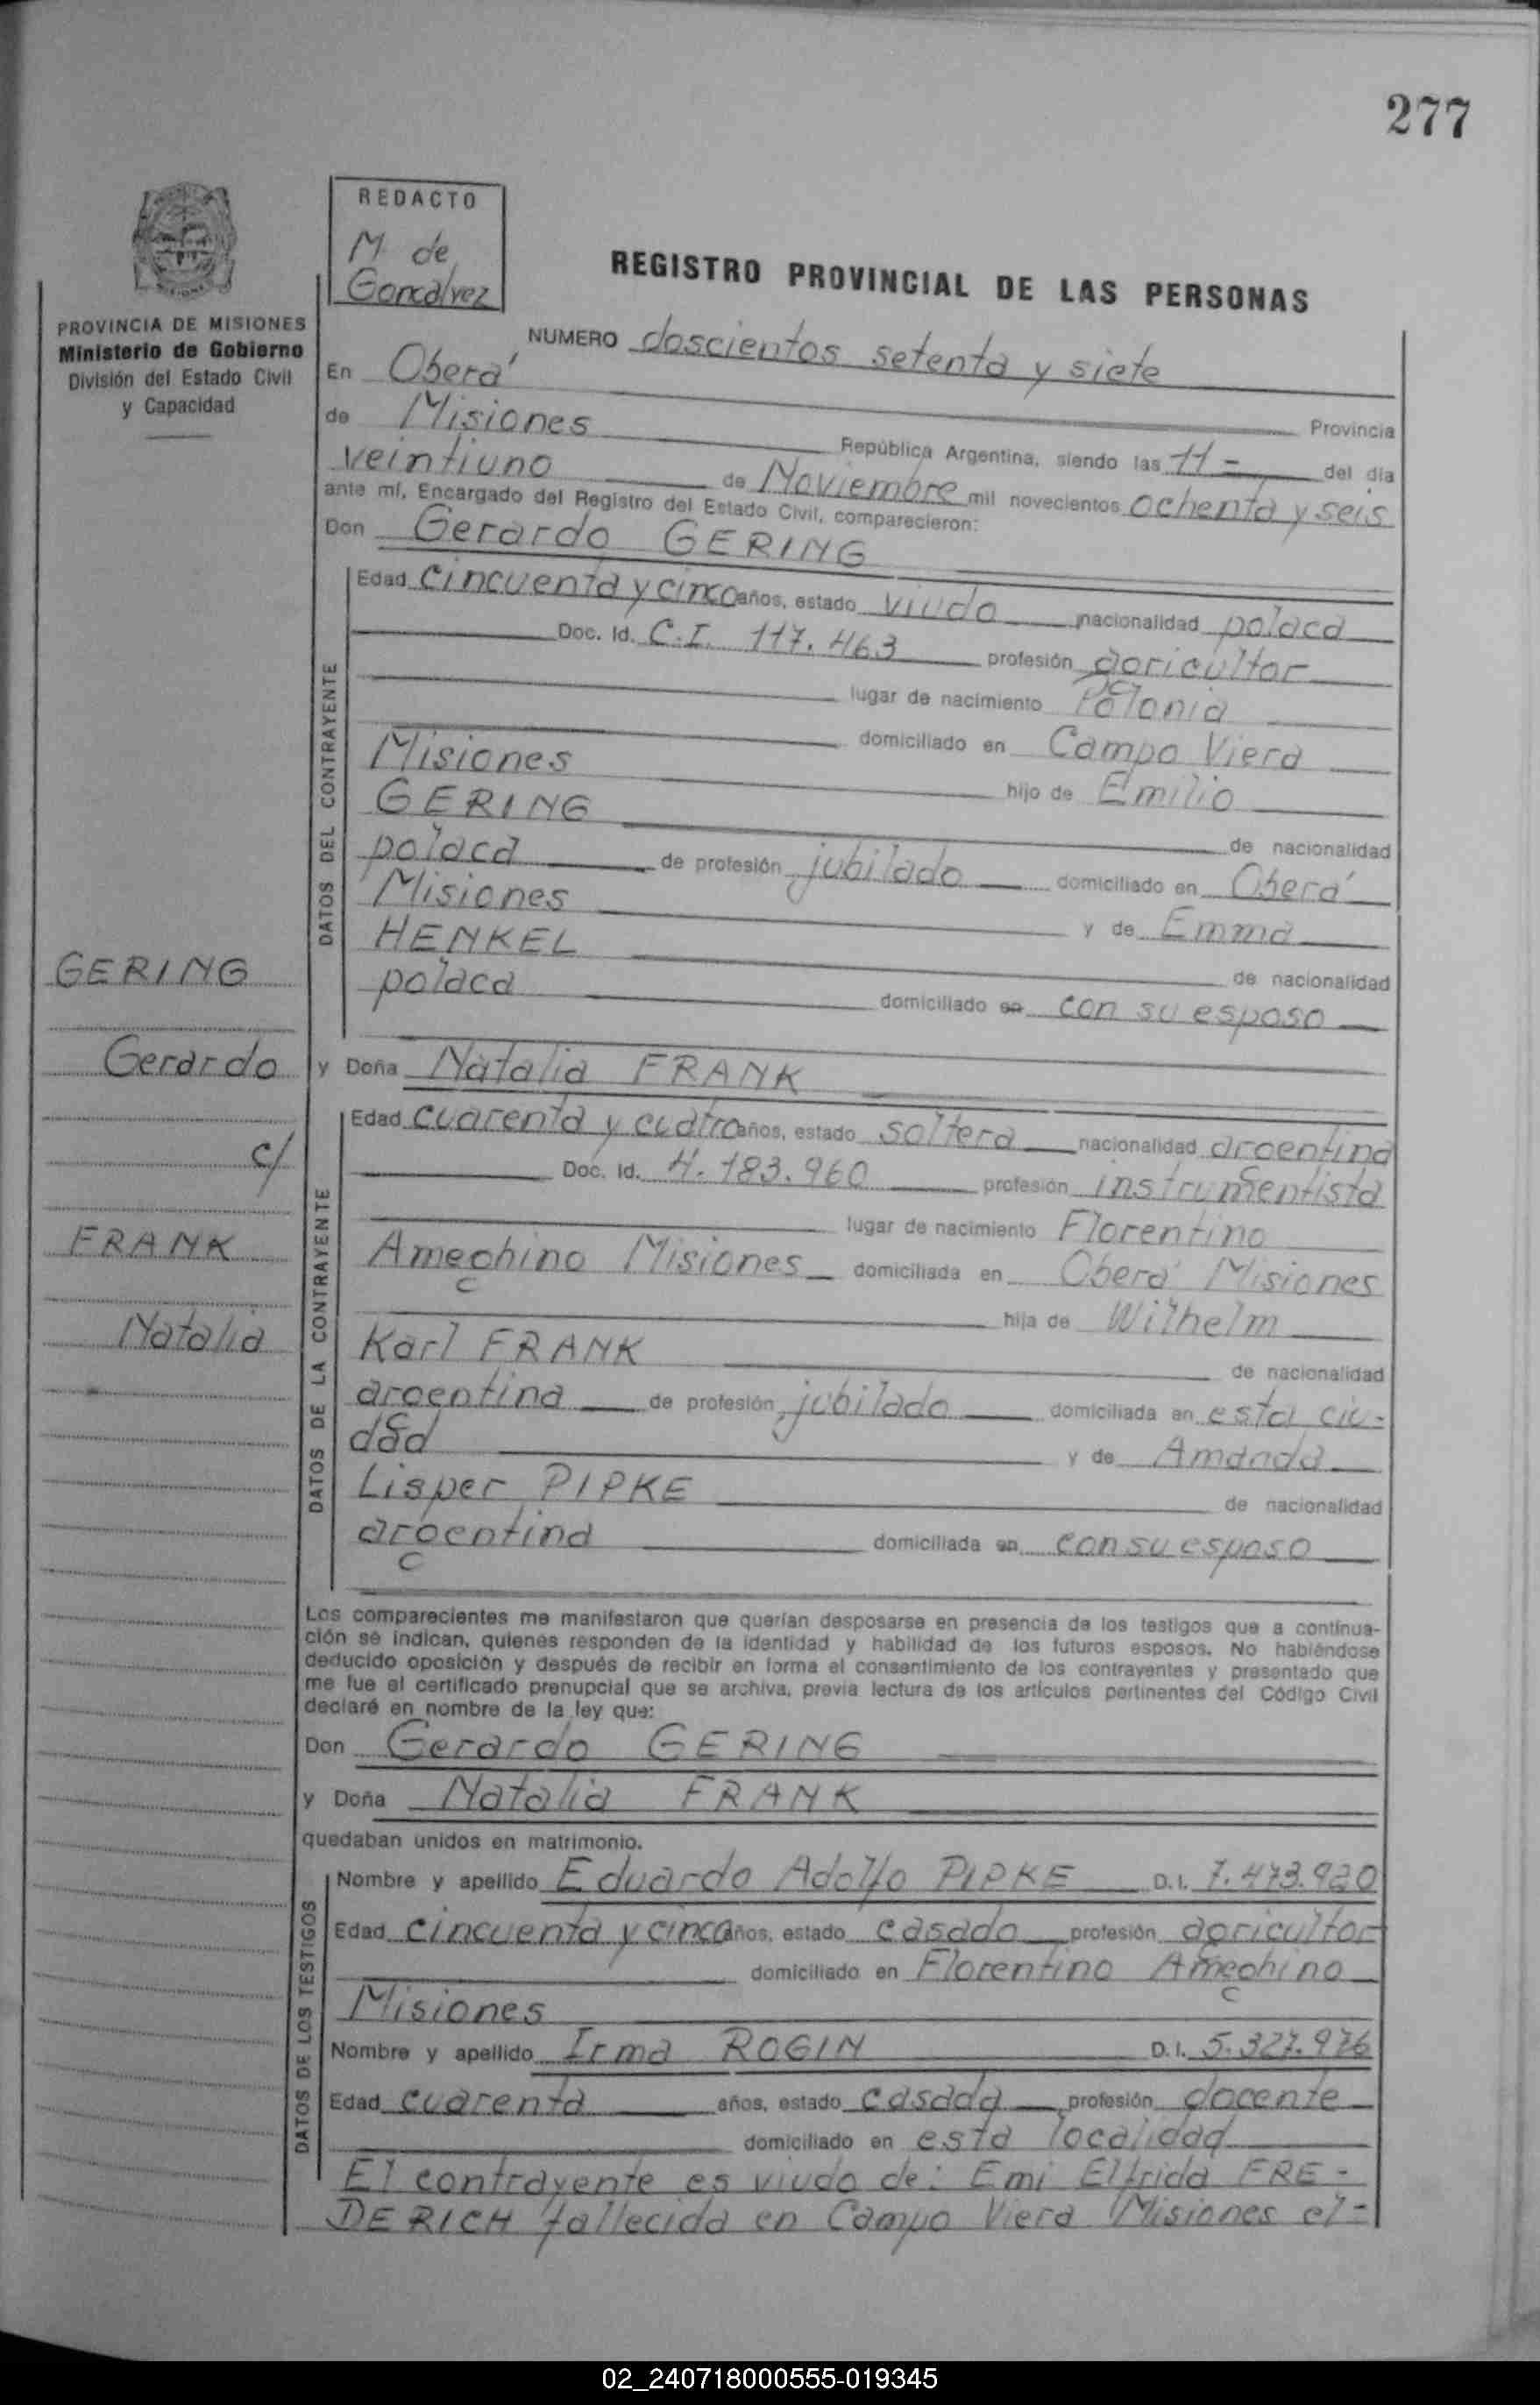 277
REDACTO
M. de
Goncalvez
REGISTRO PROVINCIAL DE LAS PERSONAS
PROVINCIA DE MISIONES
Ministerio de Gobierno
División del Estado Civil
y Capacidad
NUMERO doscientos setenta y siete
En Oberá
Provincia
de Misiones República Argentina, siendo las 11 - del día
veintiuno de Noviembre mil novecientos ochenta y seis
ante mí, Encargado del Registro del Estado Civil, comparecieron:
Don Gerardo GERING
DATOS DEL CONTRAYENTE
Edad cincuenta y cinco años, estado viudo nacionalidad polaca
Doc. Id. C.I. 117.463 profesión agricultor
lugar de nacimiento Polonia
domiciliado en Campo Viera
Misiones hijo de Emilio
GERING de nacionalidad
polaca de profesión jubilado domiciliado en Oberá
Misiones y de Emma
HENKEL de nacionalidad
polaca domiciliado en con su esposo
y Doña Natalia FRANK
GERING
Gerardo
c/
FRANK
Natalia
DATOS DE LA CONTRAYENTE
Edad cuarenta y cuatro años, estado soltera nacionalidad argentina
Doc. Id. 4.183.960 profesión instrumentista
lugar de nacimiento Florentino
Ameghino Misiones domiciliada en Oberá Misiones
hija de Wilhelm
Karl FRANK de nacionalidad
argentina de profesión jubilado domiciliada en esta ciu-
dad y de Amanda
Lisper PIPKE de nacionalidad
argentina domiciliada en con su esposo
Los comparecientes me manifestaron que querían desposarse en presencia de los testigos que a continua-
ción se indican, quienes responden de la identidad y habilidad de los futuros esposos. No habiéndose
deducido oposición y después de recibir en forma el consentimiento de los contrayentes y presentado que
me fue el certificado prenupcial que se archiva, previa lectura de los artículos pertinentes del Código Civil
declaré en nombre de la ley que:
Don Gerardo GERING
y Doña Natalia FRANK
quedaban unidos en matrimonio.
DATOS DE LOS TESTIGOS
Nombre y apellido Eduardo Adolfo PIPKE D.I. 7.473.920
Edad cincuenta y cinco años, estado casado profesión agricultor
domiciliado en Florentino Ameghino
Misiones
Nombre y apellido Irma ROGIN D.I. 5.327.976
Edad cuarenta años, estado casada profesión docente
domiciliado en esta localidad
El contrayente es viudo de: Emi Elfrida FRE-
DERICH fallecida en Campo Viera Misiones el-
02_240718000555-019345